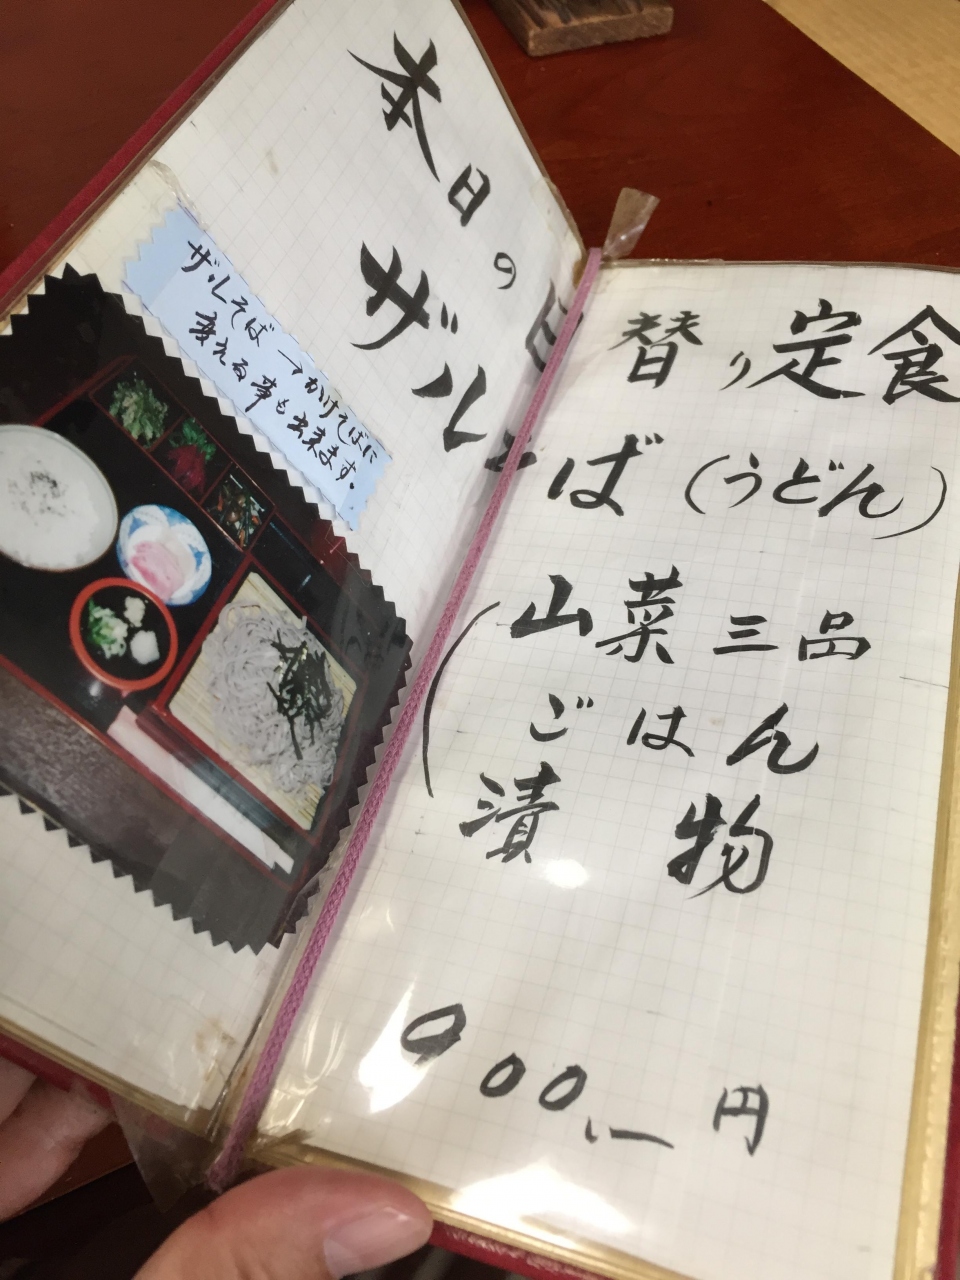 本日の日替り定食
ザルそば(うどん)
山菜三品
ごはん
漬物
900.ー円
ザルそば→かけそばに
変える事も出来ます。